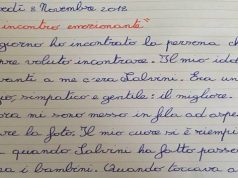 edì 8 Novembre 2018
incontro emozionante"
giorno ho incontrato la persona ch
pre voluto incontrare. Il mio idol
vanti a me c'era Salvini. Era un
o, simpatico e gentile: il migliore.
ora mi sono messo in fila ad aspe
re la foto. Il mio cuore si è riempi
quando Salvini ha fatto passa
a i bambini. Quando toccava a